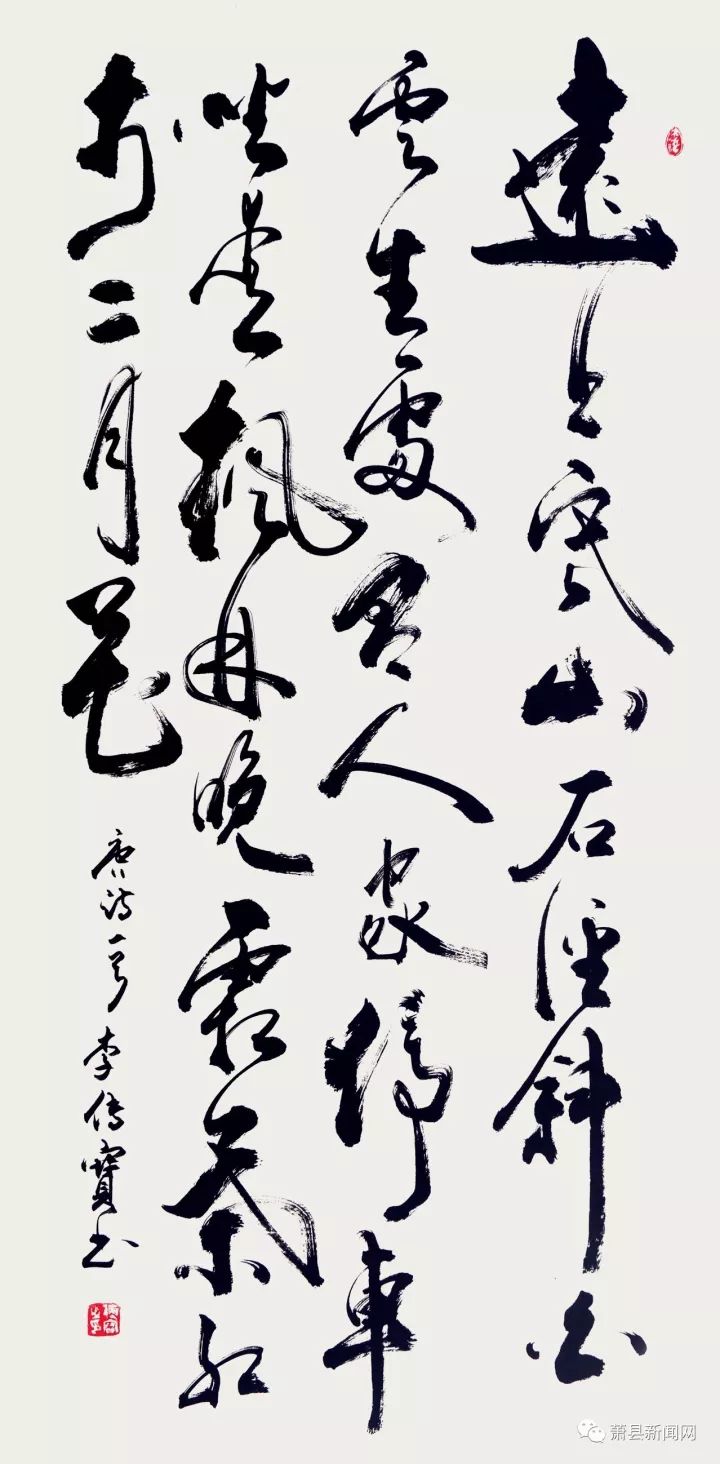 遠上寒山石徑斜白
雲生處有人家停車
坐愛楓林晚霜葉紅
於二月花
唐詩一首 李傳寶書
萧县新闻网